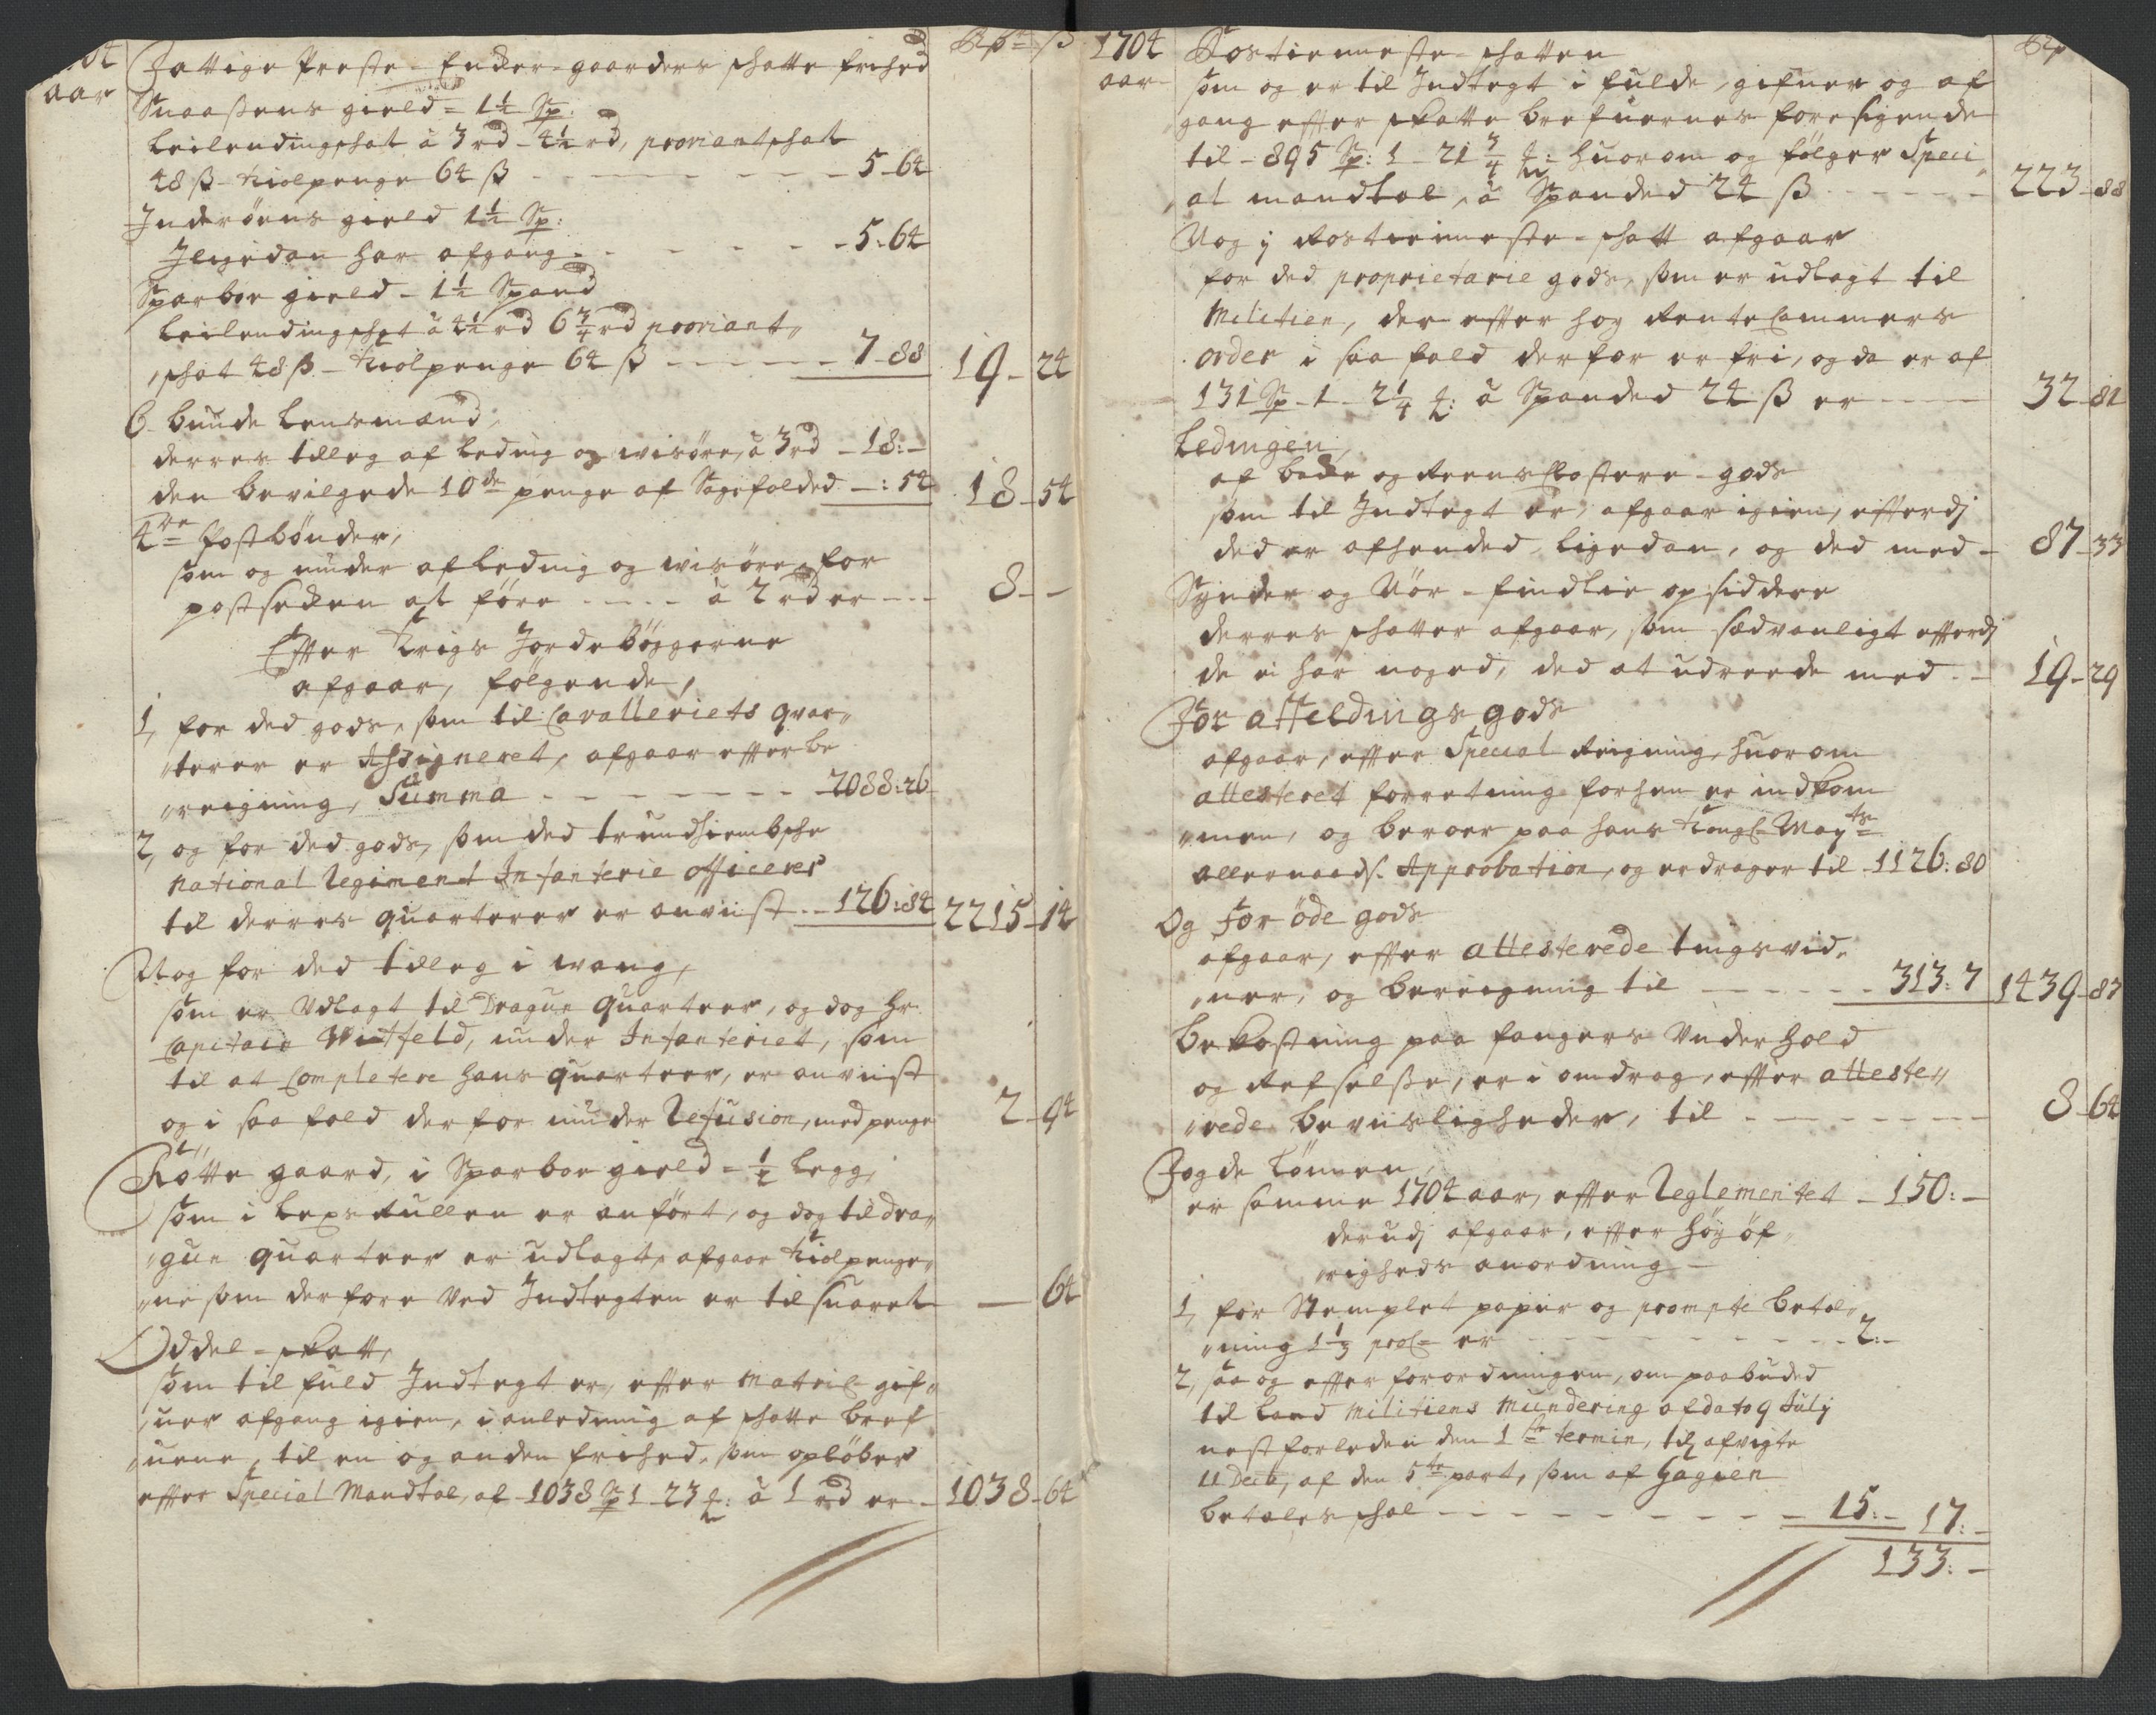 04
aar
Fattige Preste-Encker-gaarders schatte frihed
Rdr ß
Snaasens gield = 1½ Sp:
leilendingschat à 3 rd - 4½ rd, proviantschat
48 ß - kiolpenge 64 ß - - - - - 5-64
Inderøens gield 1½ Sp:
Ligedan har afgang - - - - - 5-64
Sparboe gield - 1½ Spand
Leilendingschat à 4½ rd 6¾ rd proviant„
„schat 48 ß - kiolpenge 64 ß - - - - - 7-88 19-24
6 bunde lensmænd,
derres tilleg af leding og wisøre, à 3 rd - 18:-
den bevilgede 10de penge af Sagefalded -: 54 18-54
4re Postbønder,
som og nyder af leding og wisøre, for
postsecken at føre - - - à 2 rd er - - 8 - -
Efter Krigs Jordebøggerne
afgaar, følgende,
1, for ded gods, som til Cavalleriets qvar„
„terer er Assigneret, afgaar efter be
„reigning, Summa - - - - - 2088:26
2, og for ded gods, som ded trundhiembsche
National Regiment Infanterie officerer
til derres quarterer er anviist - - 126:84 2215-14
Nog for ded tilleg i wang,
som er Udlagt til Dragun Quarteer, og dog hr
Capitain Witfeld, under Infanteriet, som
til at Completere hans quarteer, er anviist
og i saa fald derfor nyder Refusion, med penge 2-94
Røtte gaard, i Sparboe gield - ½ legg,
som i legs Rullen er anført, og dog til dra„
„gun quarteer er udlagt, afgaar kiolpenge„
„ne som derfore Ved Indtegten er tilsvaret - 64
Oddel-skatt,
som til fuld Indtegt er, efter Matric gif„
„ver afgang igien, i anledning af skatte bref
„vene, til en og anden frihed, som opløber
efter Special Mandtal, af 1038 Sp 1-23 : à 1 rd er - 1038-64
1704
aar
Rostienneste-schatten
Rdr
som og er til Indtegt i fulde, gifver og af
gang efter skatte brefvernes foresigende
til - 895 Sp: 1 - 21¾ : hvorom og følger Speci
„al mandtal, à Spanded 24 ß - - - - 223-88
Nog j Rostienneste-schatt afgaar
for ded proprietarie gods, som er udlagt til
Militien, der efter høy RenteCammers
order i saa fald derfor er fri, og da er af
131 Sp - 1 - 2¼ : à Spanded 24 ß er - - - 32-81
Ledingen,
af bache og Reens Clostere-gods
som til Indtegt er, afgaar igien, efterdj
ded er afhended, ligedan, og ded med - 87-33
Synder og Nør-findlie opsiddere
derres schatter afgaar, som sædvanligt efterdj
de ei har noged, ded at udreede med - - 19-29
For affeldings gods
afgaar, efter Special Reigning, hvorom
attesteret forretning forhen er indkom
„men, og beroer paa hans Kongl: Mayts
allernaads. Approbation, og erdrager til 1126:80
Og For øde gods
afgaar, efter attesterede tingsvid„
„ner, og bereigning til - - - - - 313:7 1439-87
Bekostning paa fangers Underhold
og Refselse, er i omdrag, efter atteste„
„rede beviisligheder, til - - - - - 8-64
Fogde Lønnen,
er samme 1704 aar, efter Reglementet - 150:-
derudj afgaar, efter høy øf„
„righeds anordning -
1, for Stemplet papir og prompte betal„
„ning 1⅓ proC er - - - - - 2:-
2, saa og efter forordningen, om paabuded
til Land Militiens Mundering af dato 9 Julij
nest forleden den 1ste termin, til afvigte
11 Decb, af den 5te part, som af Gagien
betales schal - - - - - - 15:- 17:-
133:-